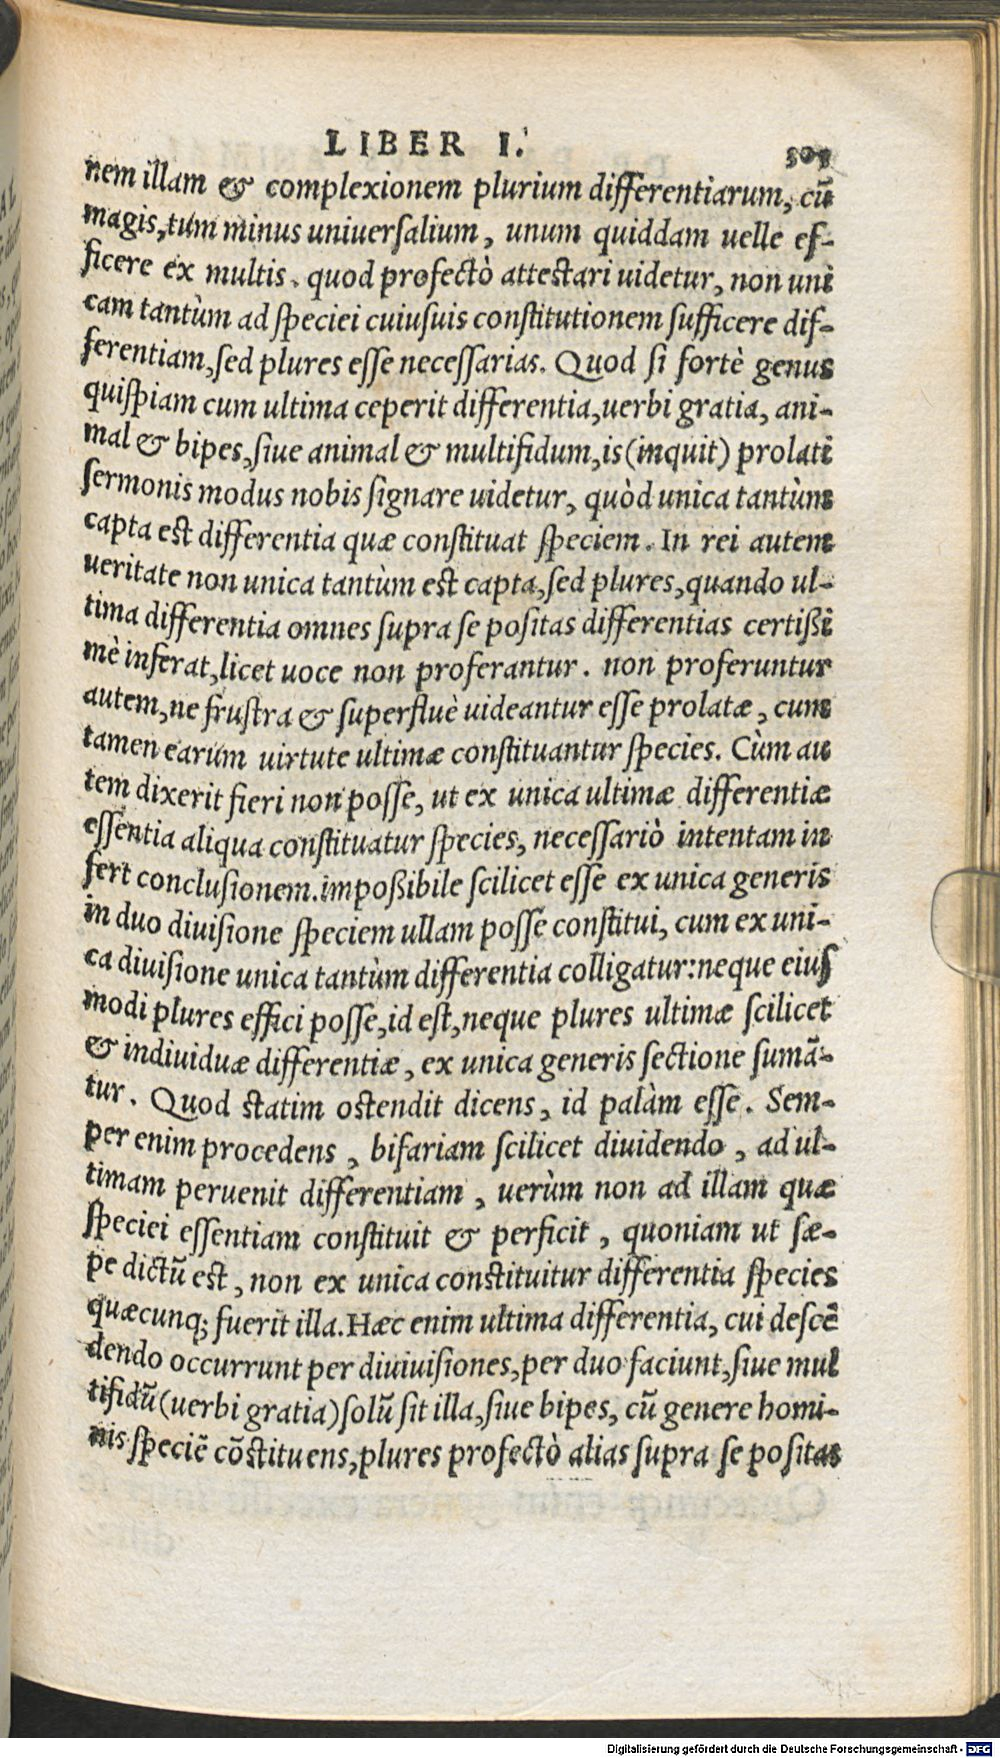 LIBER I. 305
nem illam & complexionem plurium differentiarum, cũ
magis, tum minus uniuerſalium, unum quiddam uelle ef-
ficere ex multis. quod profectò atteſtari uidetur, non uni
cam tantùm ad ſpeciei cuiuſuis conſtitutionem ſufficere dif-
ferentiam, ſed plures eſſe neceſſarias. Quod ſi fortè genus
quiſpiam cum ultima ceperit differentia, uerbi gratia, ani-
mal & bipes, ſiue animal & multifidum, is (inquit) prolati
ſermonis modus nobis ſignare uidetur, quòd unica tantùm
capta eſt differentia quæ conſtituat ſpeciem. In rei autem
ueritate non unica tantùm eſt capta, ſed plures, quando ul-
tima differentia omnes ſupra ſe poſitas differentias certißi
mè inferat, licet uoce non proferantur. non proferuntur
autem, ne fruſtra & ſuperfluè uideantur eſſe prolatæ, cum
tamen earum uirtute ultimæ conſtituantur ſpecies. Cùm au
tem dixerit fieri non poſſe, ut ex unica ultimæ differentiæ
eſſentia aliqua conſtituatur ſpecies, neceſſariò intentam in
fert concluſionem. impoßibile ſcilicet eſſe ex unica generis
in duo diuiſione ſpeciem ullam poſſe conſtitui, cum ex uni-
ca diuiſione unica tantùm differentia colligatur: neque eiuſ
modi plures effici poſſe, id eſt, neque plures ultimæ ſcilicet
& indiuiduæ differentiæ, ex unica generis ſectione ſumã-
tur. Quod ſtatim oſtendit dicens, id palàm eſſe. Sem-
per enim procedens, bifariam ſcilicet diuidendo, ad ul-
timam peruenit differentiam, uerùm non ad illam quæ
ſpeciei eſſentiam conſtituit & perficit, quoniam ut ſæ-
pe dictũ eſt, non ex unica conſtituitur differentia ſpecies
quæcunq; fuerit illa. Hæc enim ultima differentia, cui deſcẽ
dendo occurrunt per diuiuiſiones, per duo faciunt, ſiue mul
tifidũ (uerbi gratia) ſolũ ſit illa, ſiue bipes, cũ genere homi-
nis ſpeciẽ cõſtituens, plures profectò alias ſupra ſe poſitas
Digitalisierung gefördert durch die Deutsche Forschungsgemeinschaft - DFG